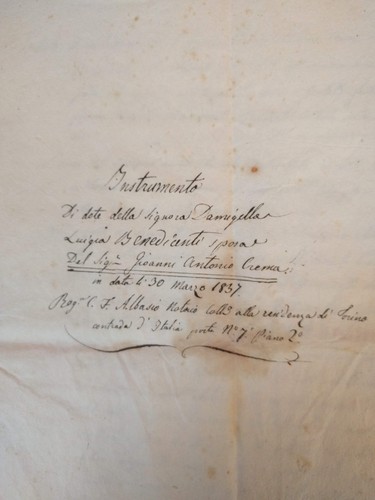 Instrumento
Di dote della Signora Damigella
Luigia Benedicenti sposa
Del Sig.r Gioanni Antonio Crema
in data li 30 Marzo 1837.
Rog.o C. F. Albasio Notaio Coll.o alla residenza di
contrada d'Italia porta N.o 7. Piano 2.o